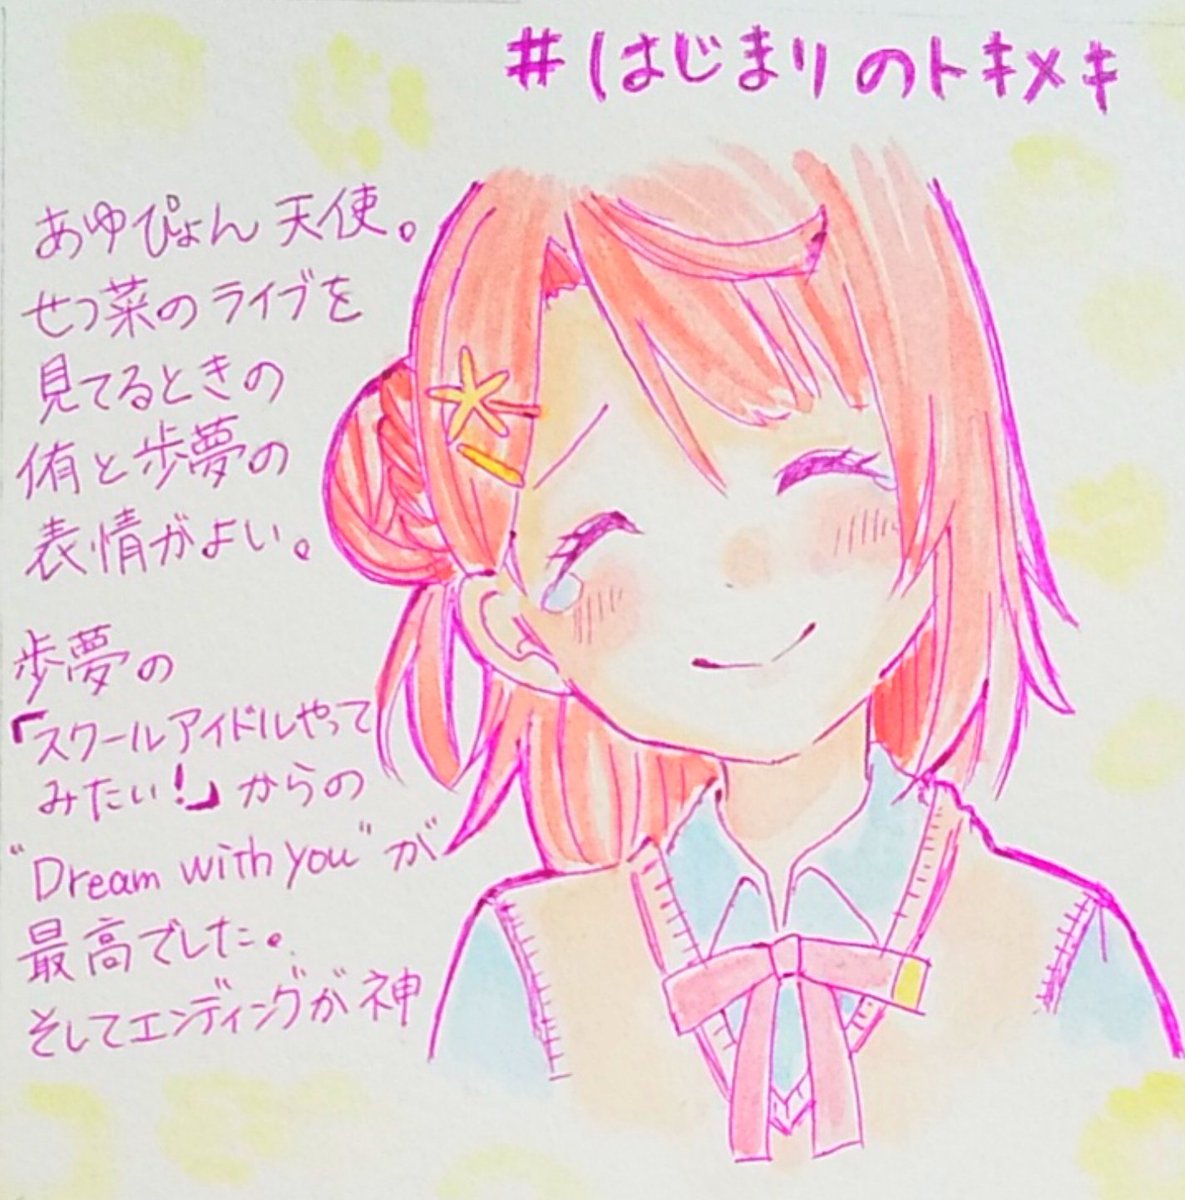 #はじまりのトキメキ
あゆぴょん 天使。
せつ菜のライブを
見てるときの
侑と歩夢の
表情がよい。
歩夢の
「スクールアイドルやって
みたい!」からの
"Dream with you"が
最高でした。
そしてエンディングが神